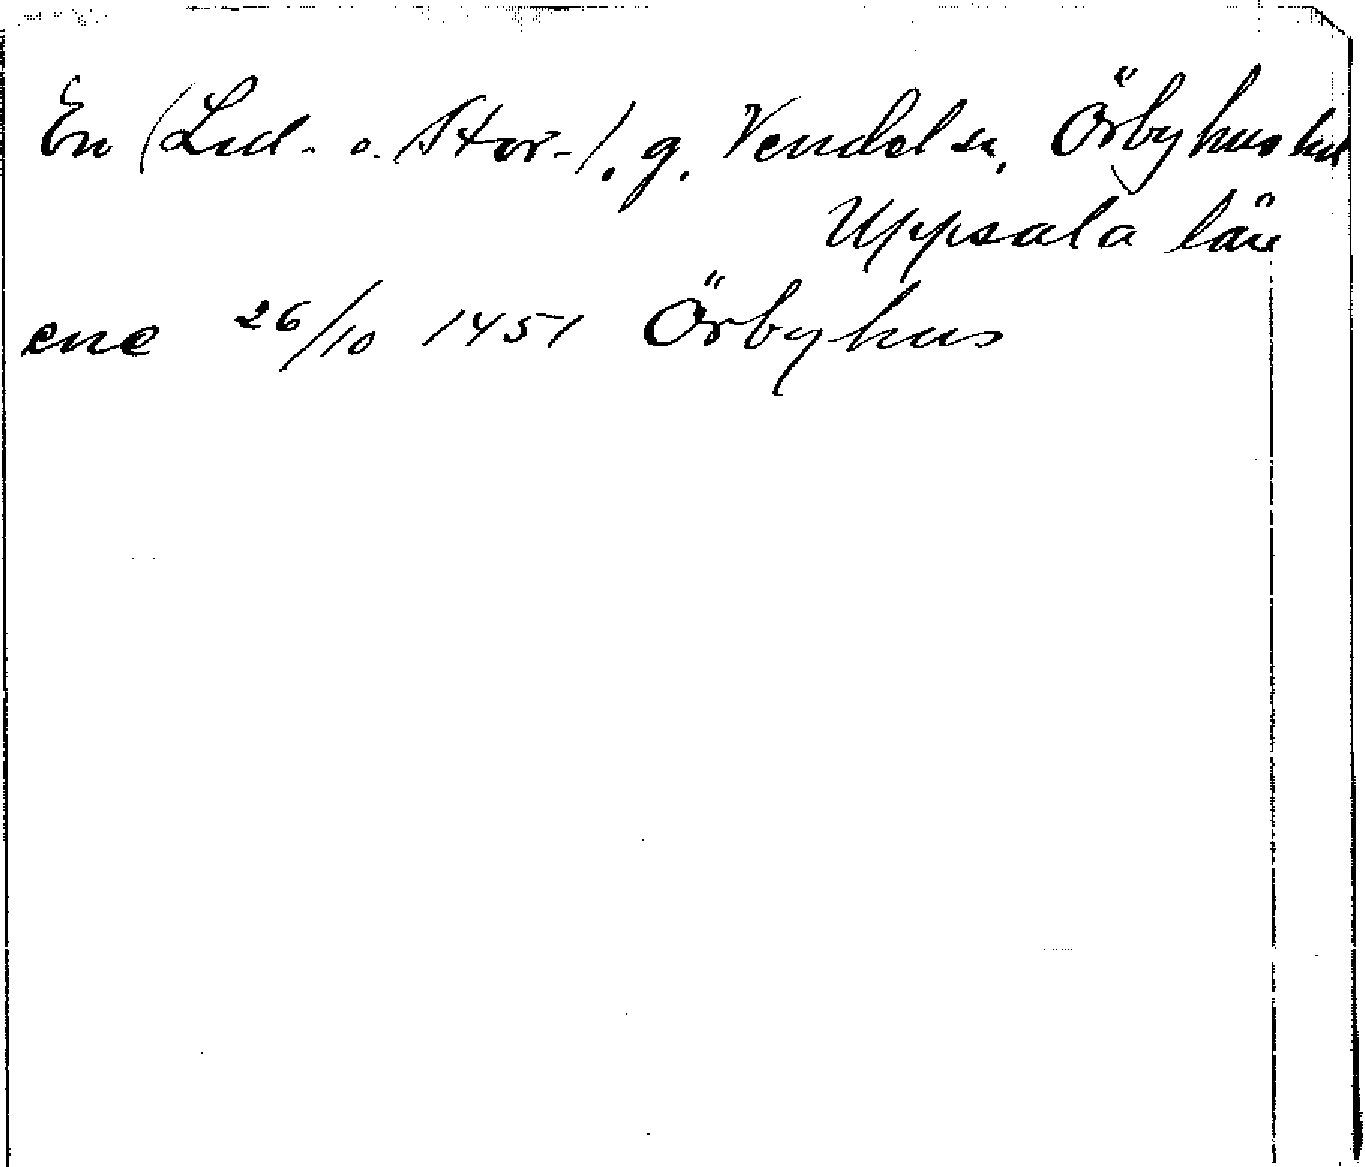 En (Lul- o. Stor-), g. Vendel sn, Örbyhus hd
Uppsala län
ene 26/10 1451 Örbyhus